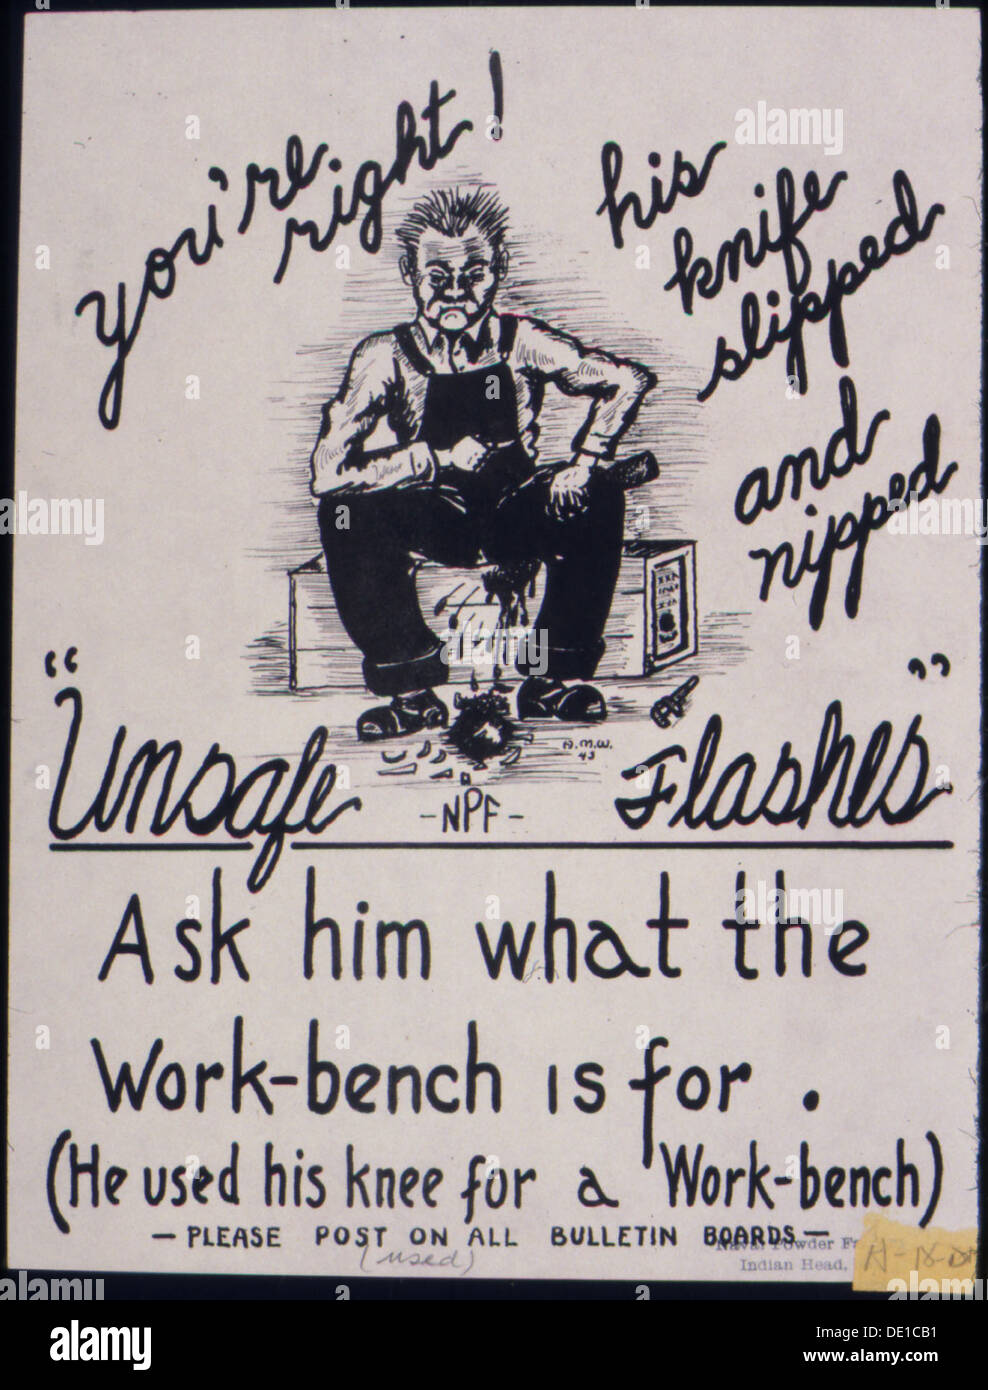 you're
right!
his
knife
slipped
and
nipped
A.M.W.
43
"Unsafe Flashes"
-NPF-
Ask him what the
Work-bench is for.
(He used his knee for a Work-bench)
- PLEASE POST ON ALL BULLETIN BOARDS -
(used)
Naval Powder
Indian Head,
A-18
alamy
DE1CB1
www.alamy.com